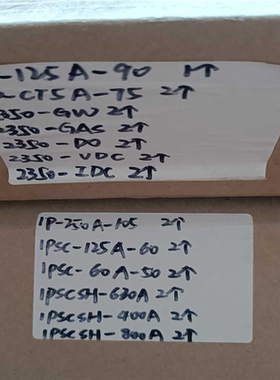 -125A-90 1个
-CT5A-75 2个
2350-GW 2个
2350-GAS 2个
2350-DO 2个
2350-VDC 2个
2350-IDC 2个
IP-250A-105 2个
IPSC-125A-60 2个
IPSC-60A-50 2个
IPSCSH-630A 2个
IPSCSH-400A 2个
IPSCSH-800A 2个